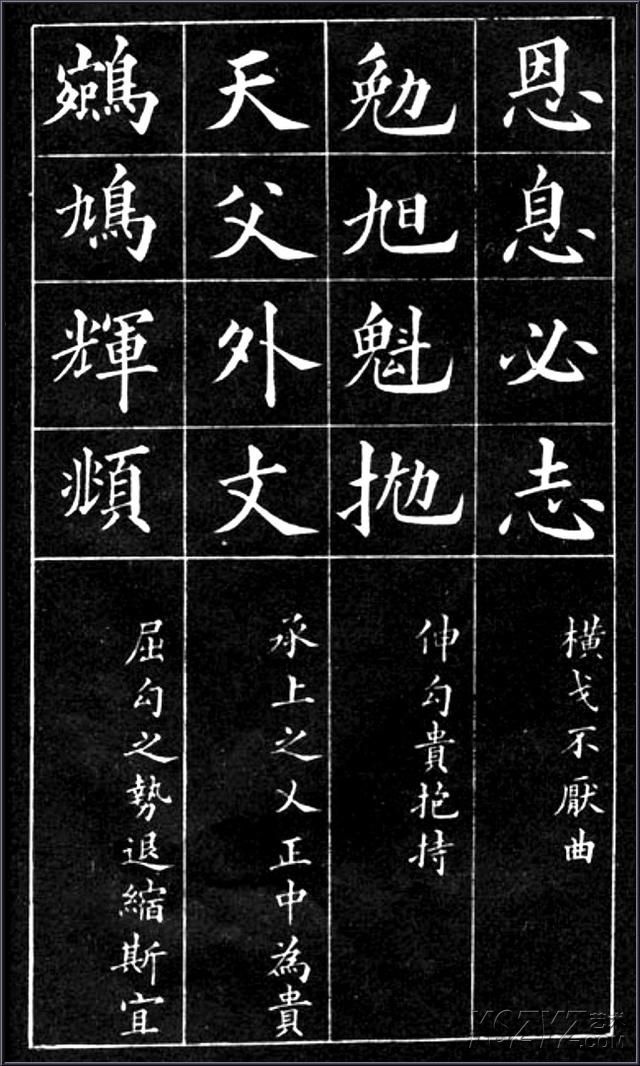 恩息必志
橫戈不厭曲
勉旭魁拋
伸勾貴抱持
天父外丈
承上之乂正中為貴
鳩輝頫
屈勾之勢退縮斯宜